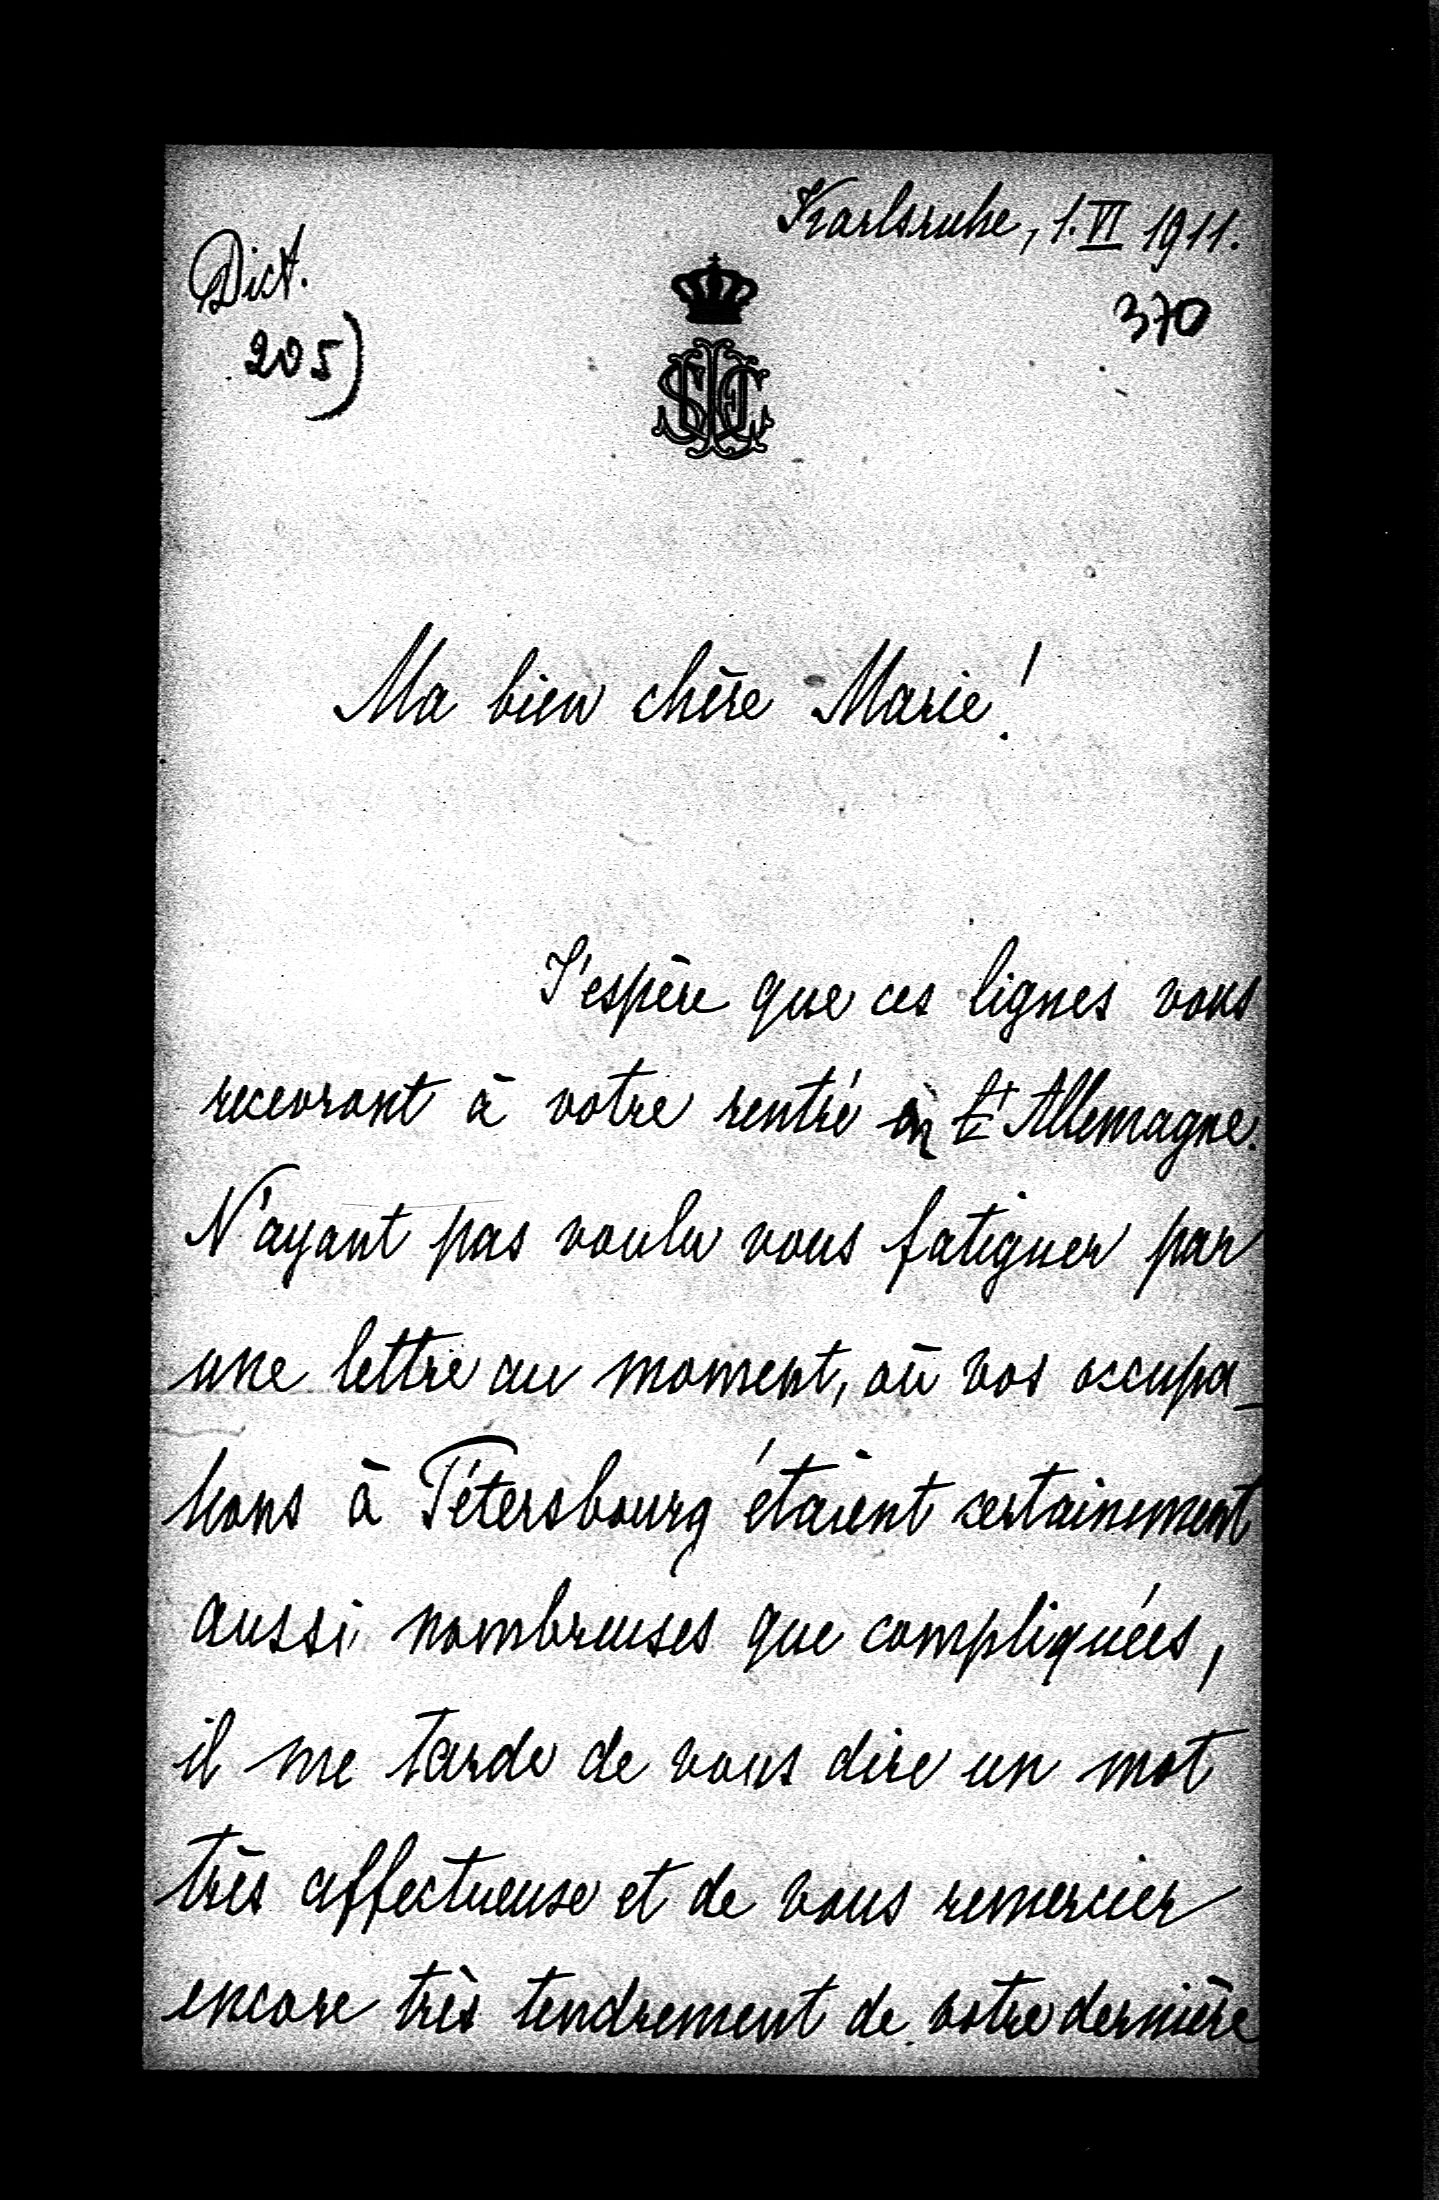 Karlsruhe, 1. VI 1911.
Dict.
370
205)
Ma bien chère Marie!
J'espère que ces lignes vous
recevront à votre rentré en Allemagne.
N'ayant pas voulu vous fatiguer par
une lettre au moment, où vos occupa-
tions à Pétersbourg étaient certainement
aussi nombreuses que compliquées,
il me tarde de vous dire un mot
très affectueuse et de vous remercier
encore très tendrement de votre dernière